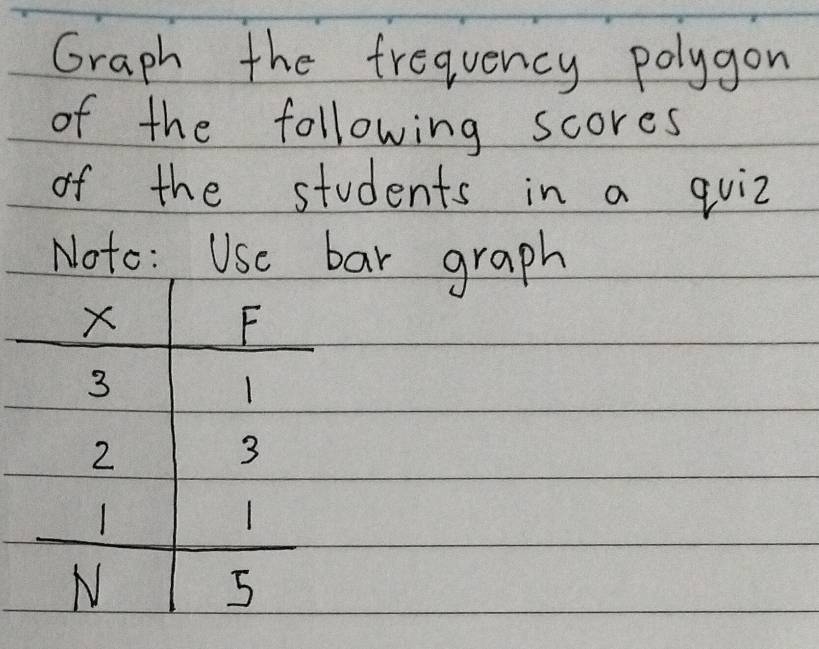 Graph the frequency polygon
of the following scores
of the students in a quiz
Note: Use bar graph
X F
3 1
2 3
1 1
N 5